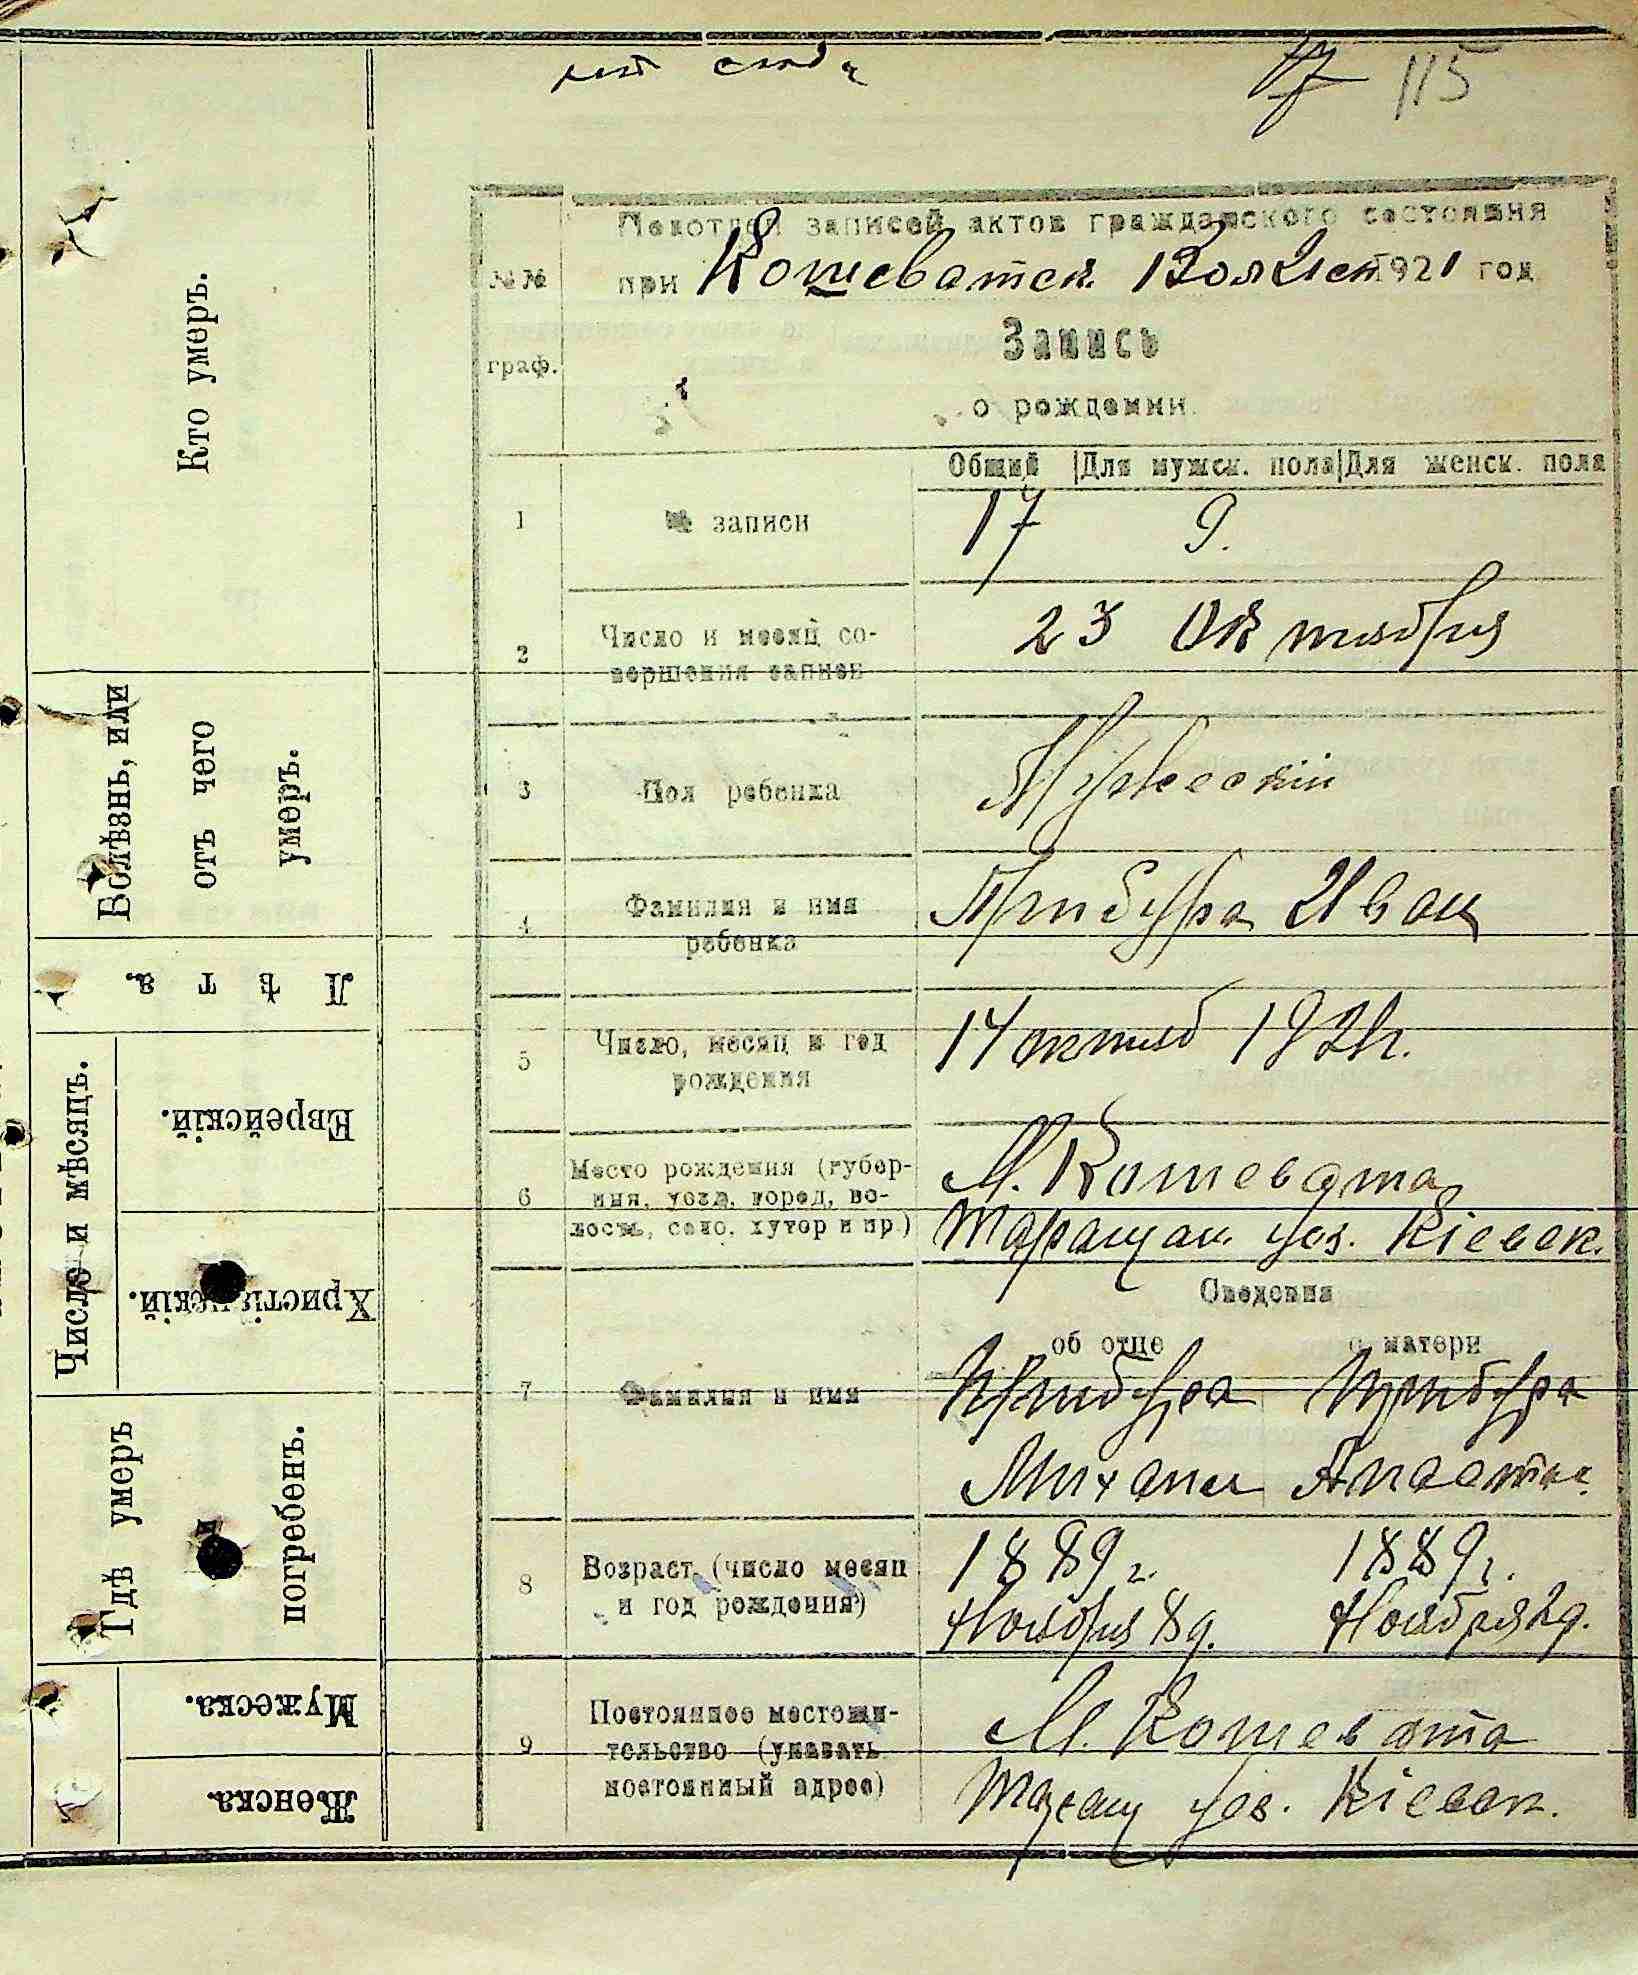 115
Кто умеръ.
Болѣзнь, или
отъ чего
умеръ.
Лѣта.
Число и мѣсяцъ.
Еврейскій.
Христіанскій.
Гдѣ умеръ
и
погребенъ.
Мужеска.
Женска.
№№
граф.
Подотдел записей актов гражданского состояния
при Кошеватск. ВолИсп 1921 год
Запись
о рождении.
Общий Для мужск. пола Для женск. пола
1 № записи 17 9.
2 Число и месяц со-
вершения записи 23 Октября
3 Пол ребенка Мужескій
4 Фамилия и имя
ребенка Прибура Иван
5 Число, месяц и год
рождения 14 октяб 1921г.
6 Место рождения (губер-
ния, уезд, город, во-
лость, село, хутор и пр.) М. Кошевата
Таращан. уез. Кіевск.
Сведения
об отце о матери
7 Фамилия и имя Прибура Прибура
Михаил Анаста.
8 Возраст (число месяц
и год рождения) 1889г. 1889г.
Ноября 8д. Ноября 2д.
9 Постоянное местожи-
тельство (указать
постоянный адрес) М. Кошевата
Таращ уез. Кіевск.